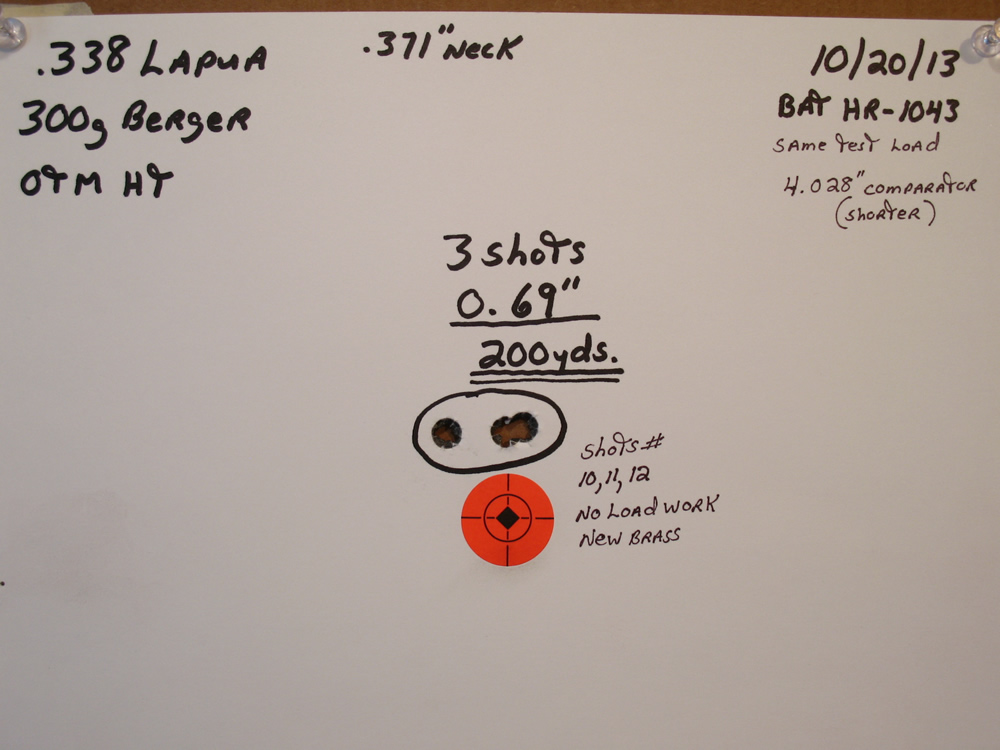 .338 LAPUA
300g BERGER
OTM HT
.371" NECK
10/20/13
BAT HR-1043
SAME TEST LOAD
4.028" COMPARATOR
(SHORTER)
3 shots
0.69"
200yds.
SHOTS#
10,11,12
NO LOAD WORK
NEW BRASS